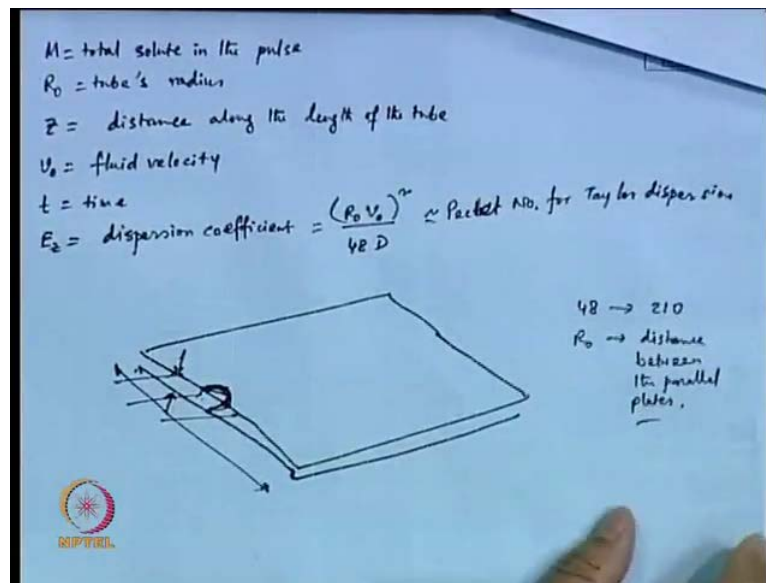 M = total solute in the pulse
R₀ = tube's radius
z = distance along the length of the tube
v₀ = fluid velocity
t = time
E_z = dispersion coefficient = (R₀ v₀)² / 48 D ≃ Peclet No. for Taylor dispersion
48 → 210
R₀ → distance
between
the parallel
plates.
NPTEL